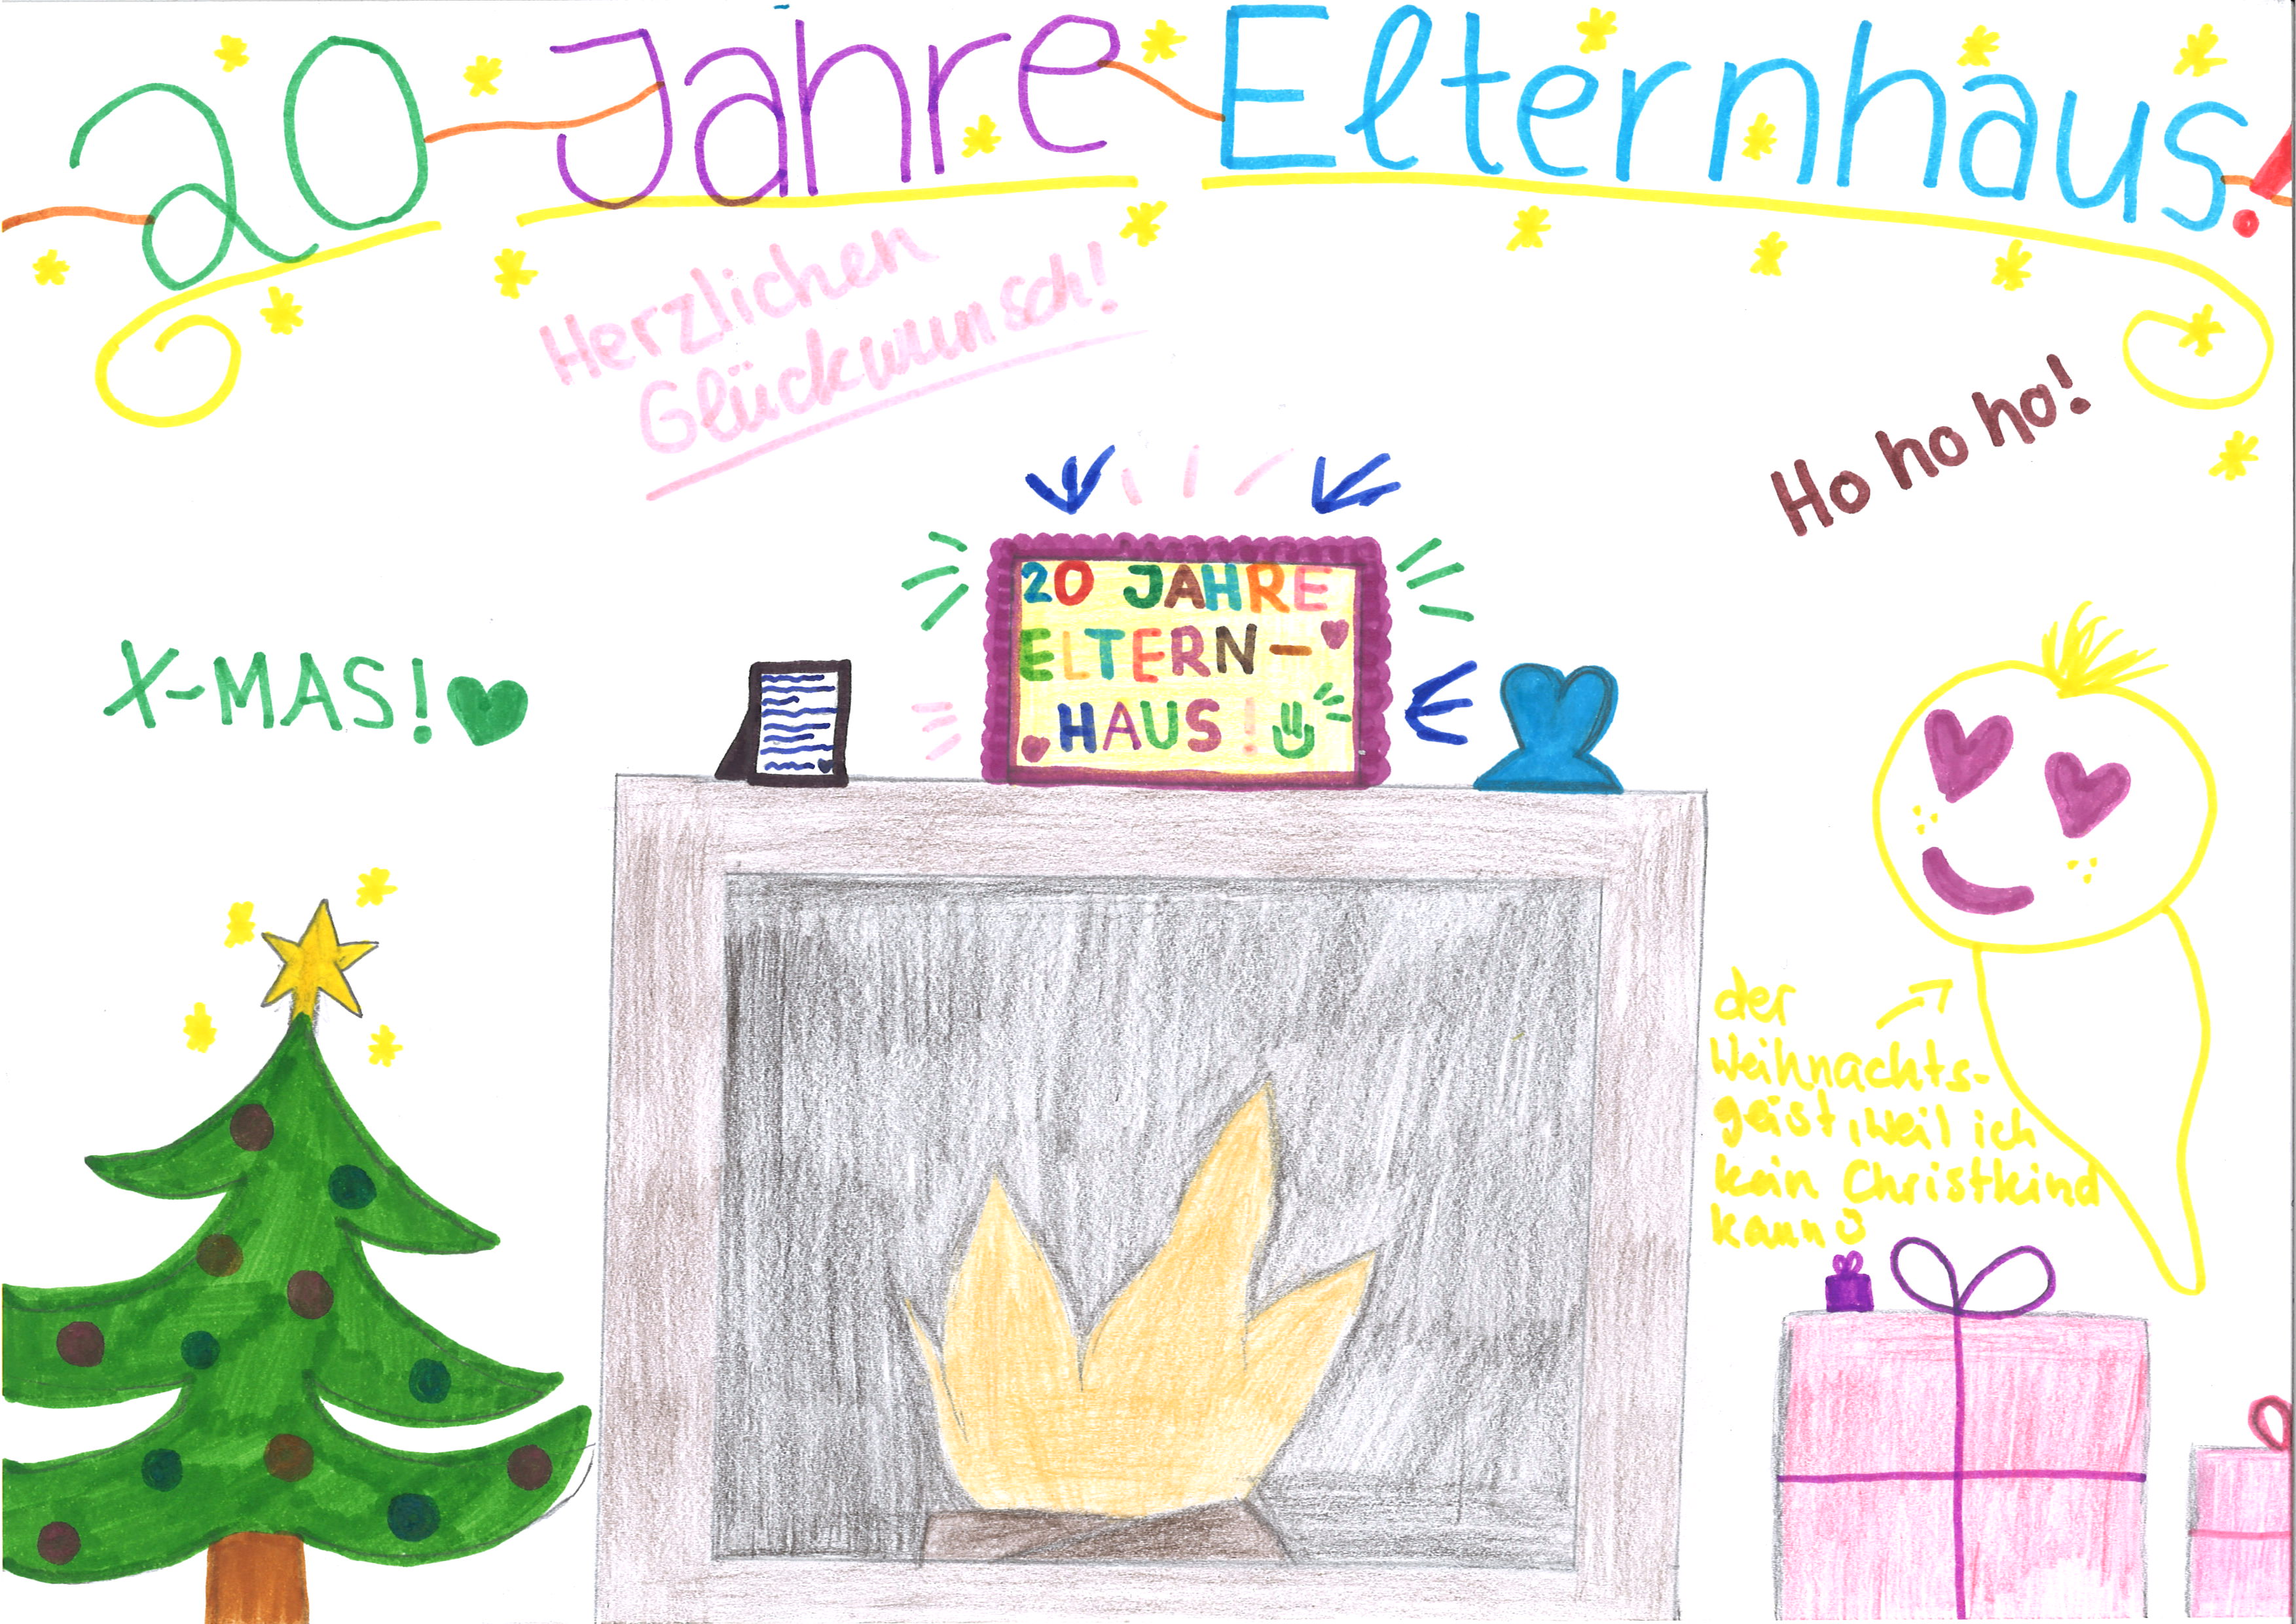 20 Jahre Elternhaus!
Herzlichen
Glückwunsch!
Ho ho ho!
20 JAHRE
ELTERN-
HAUS!
X-MAS!
der
Weihnachts-
geist, weil ich
kein Christkind
kann